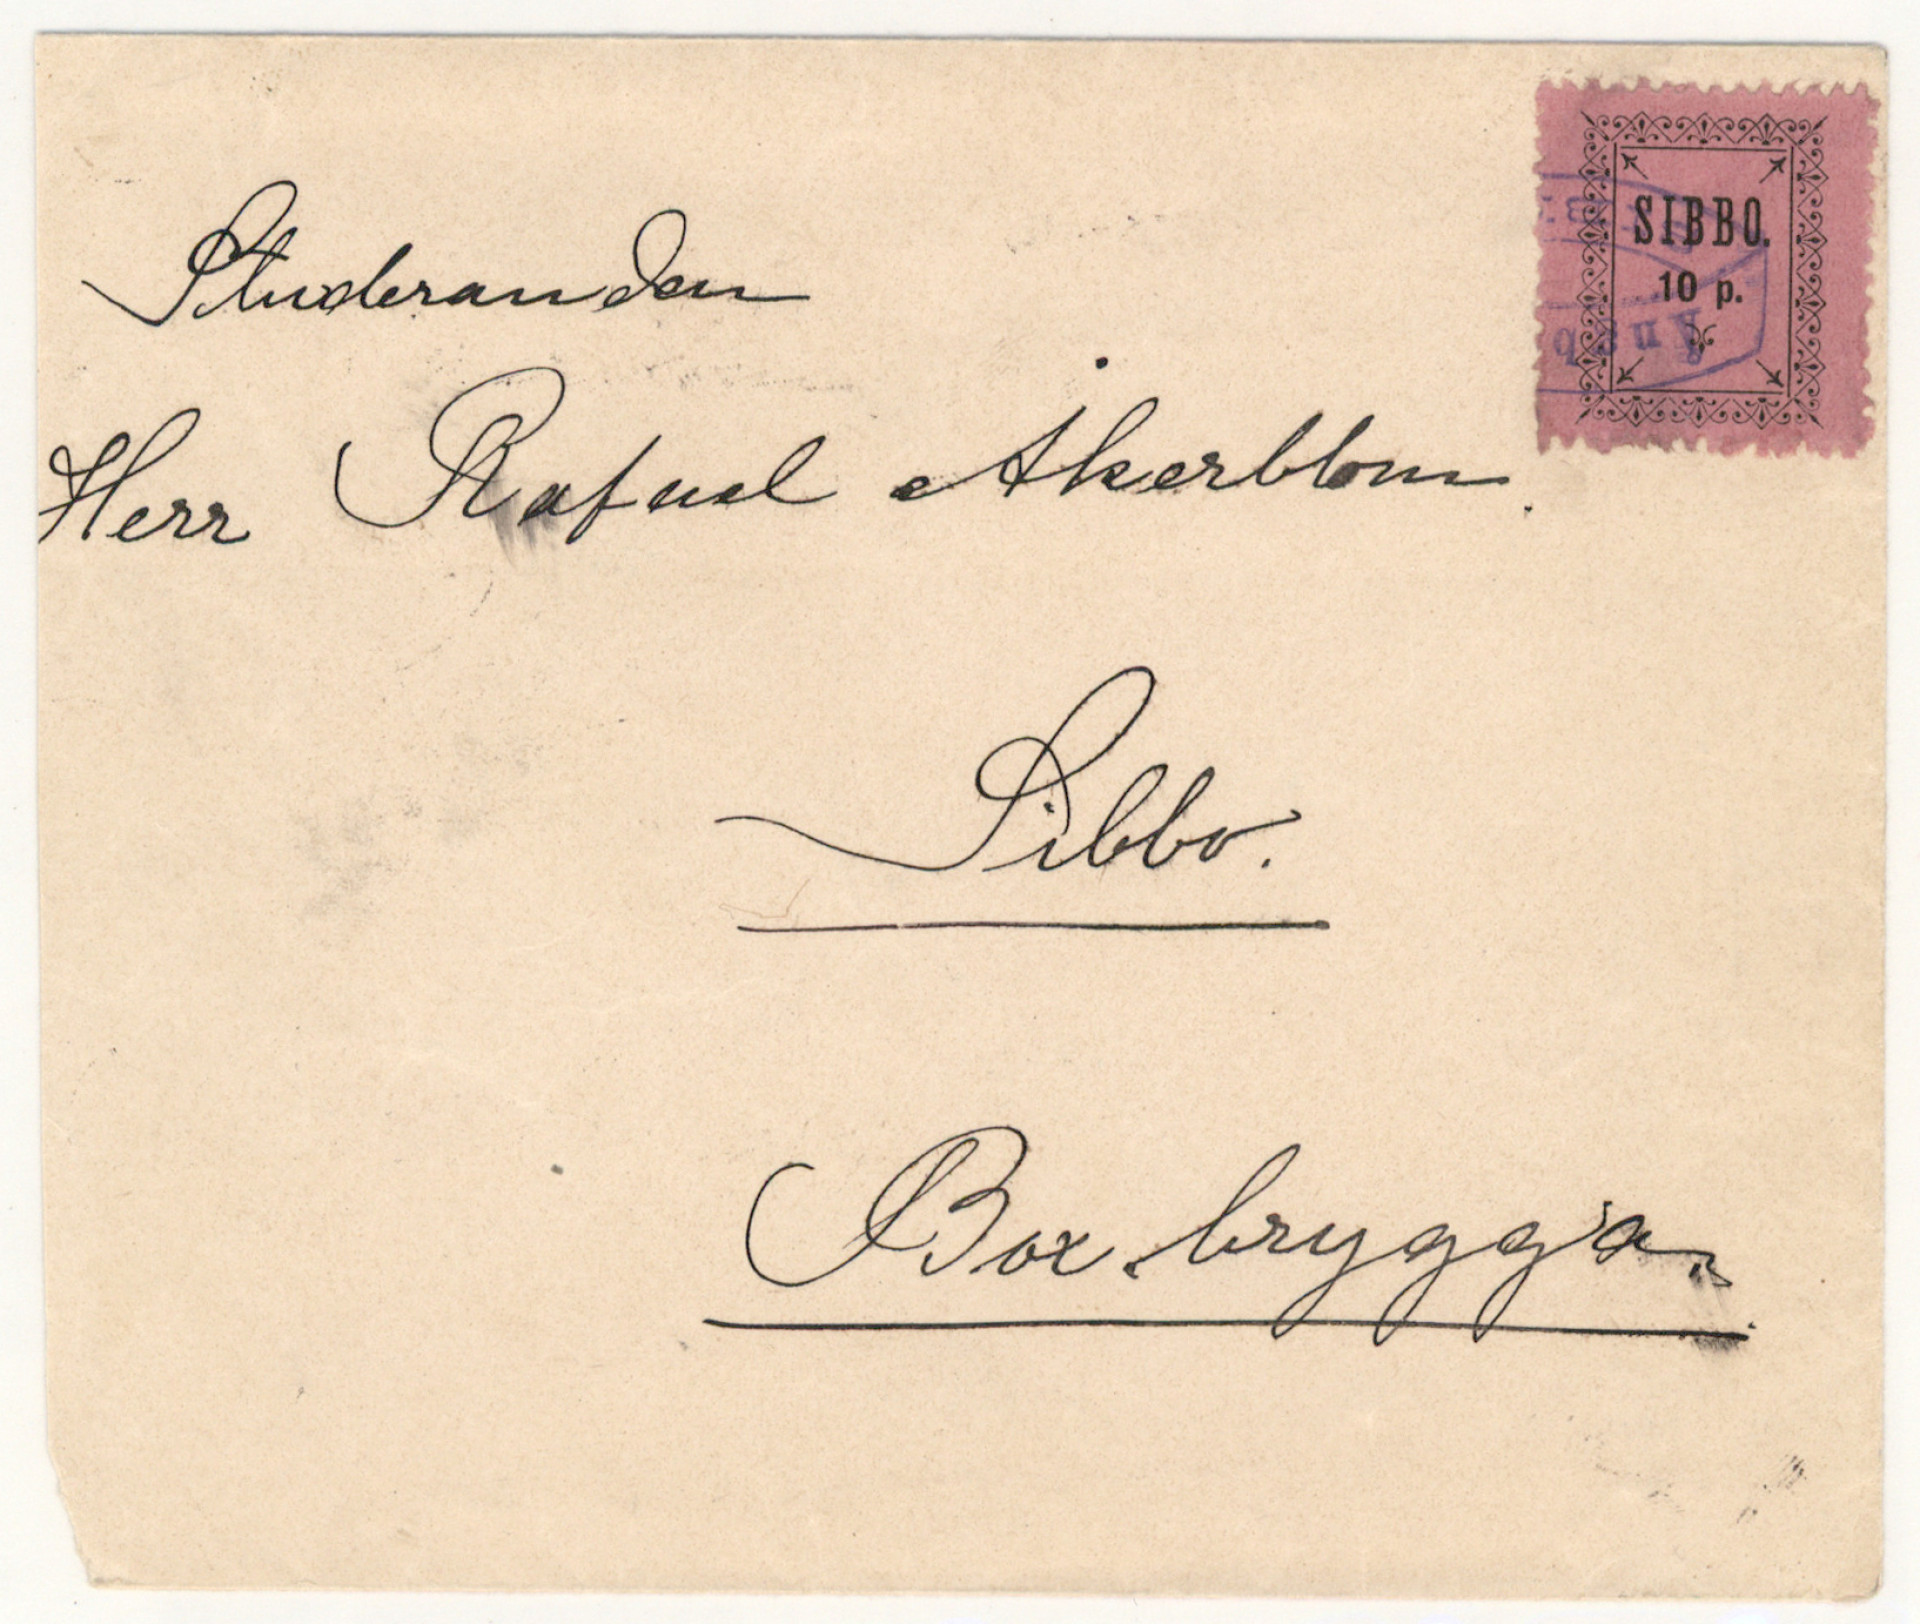 SIBBO.
10 p.
Studeranden
Herr Rafael Åkerblom.
Sibbo.
Box brygga.